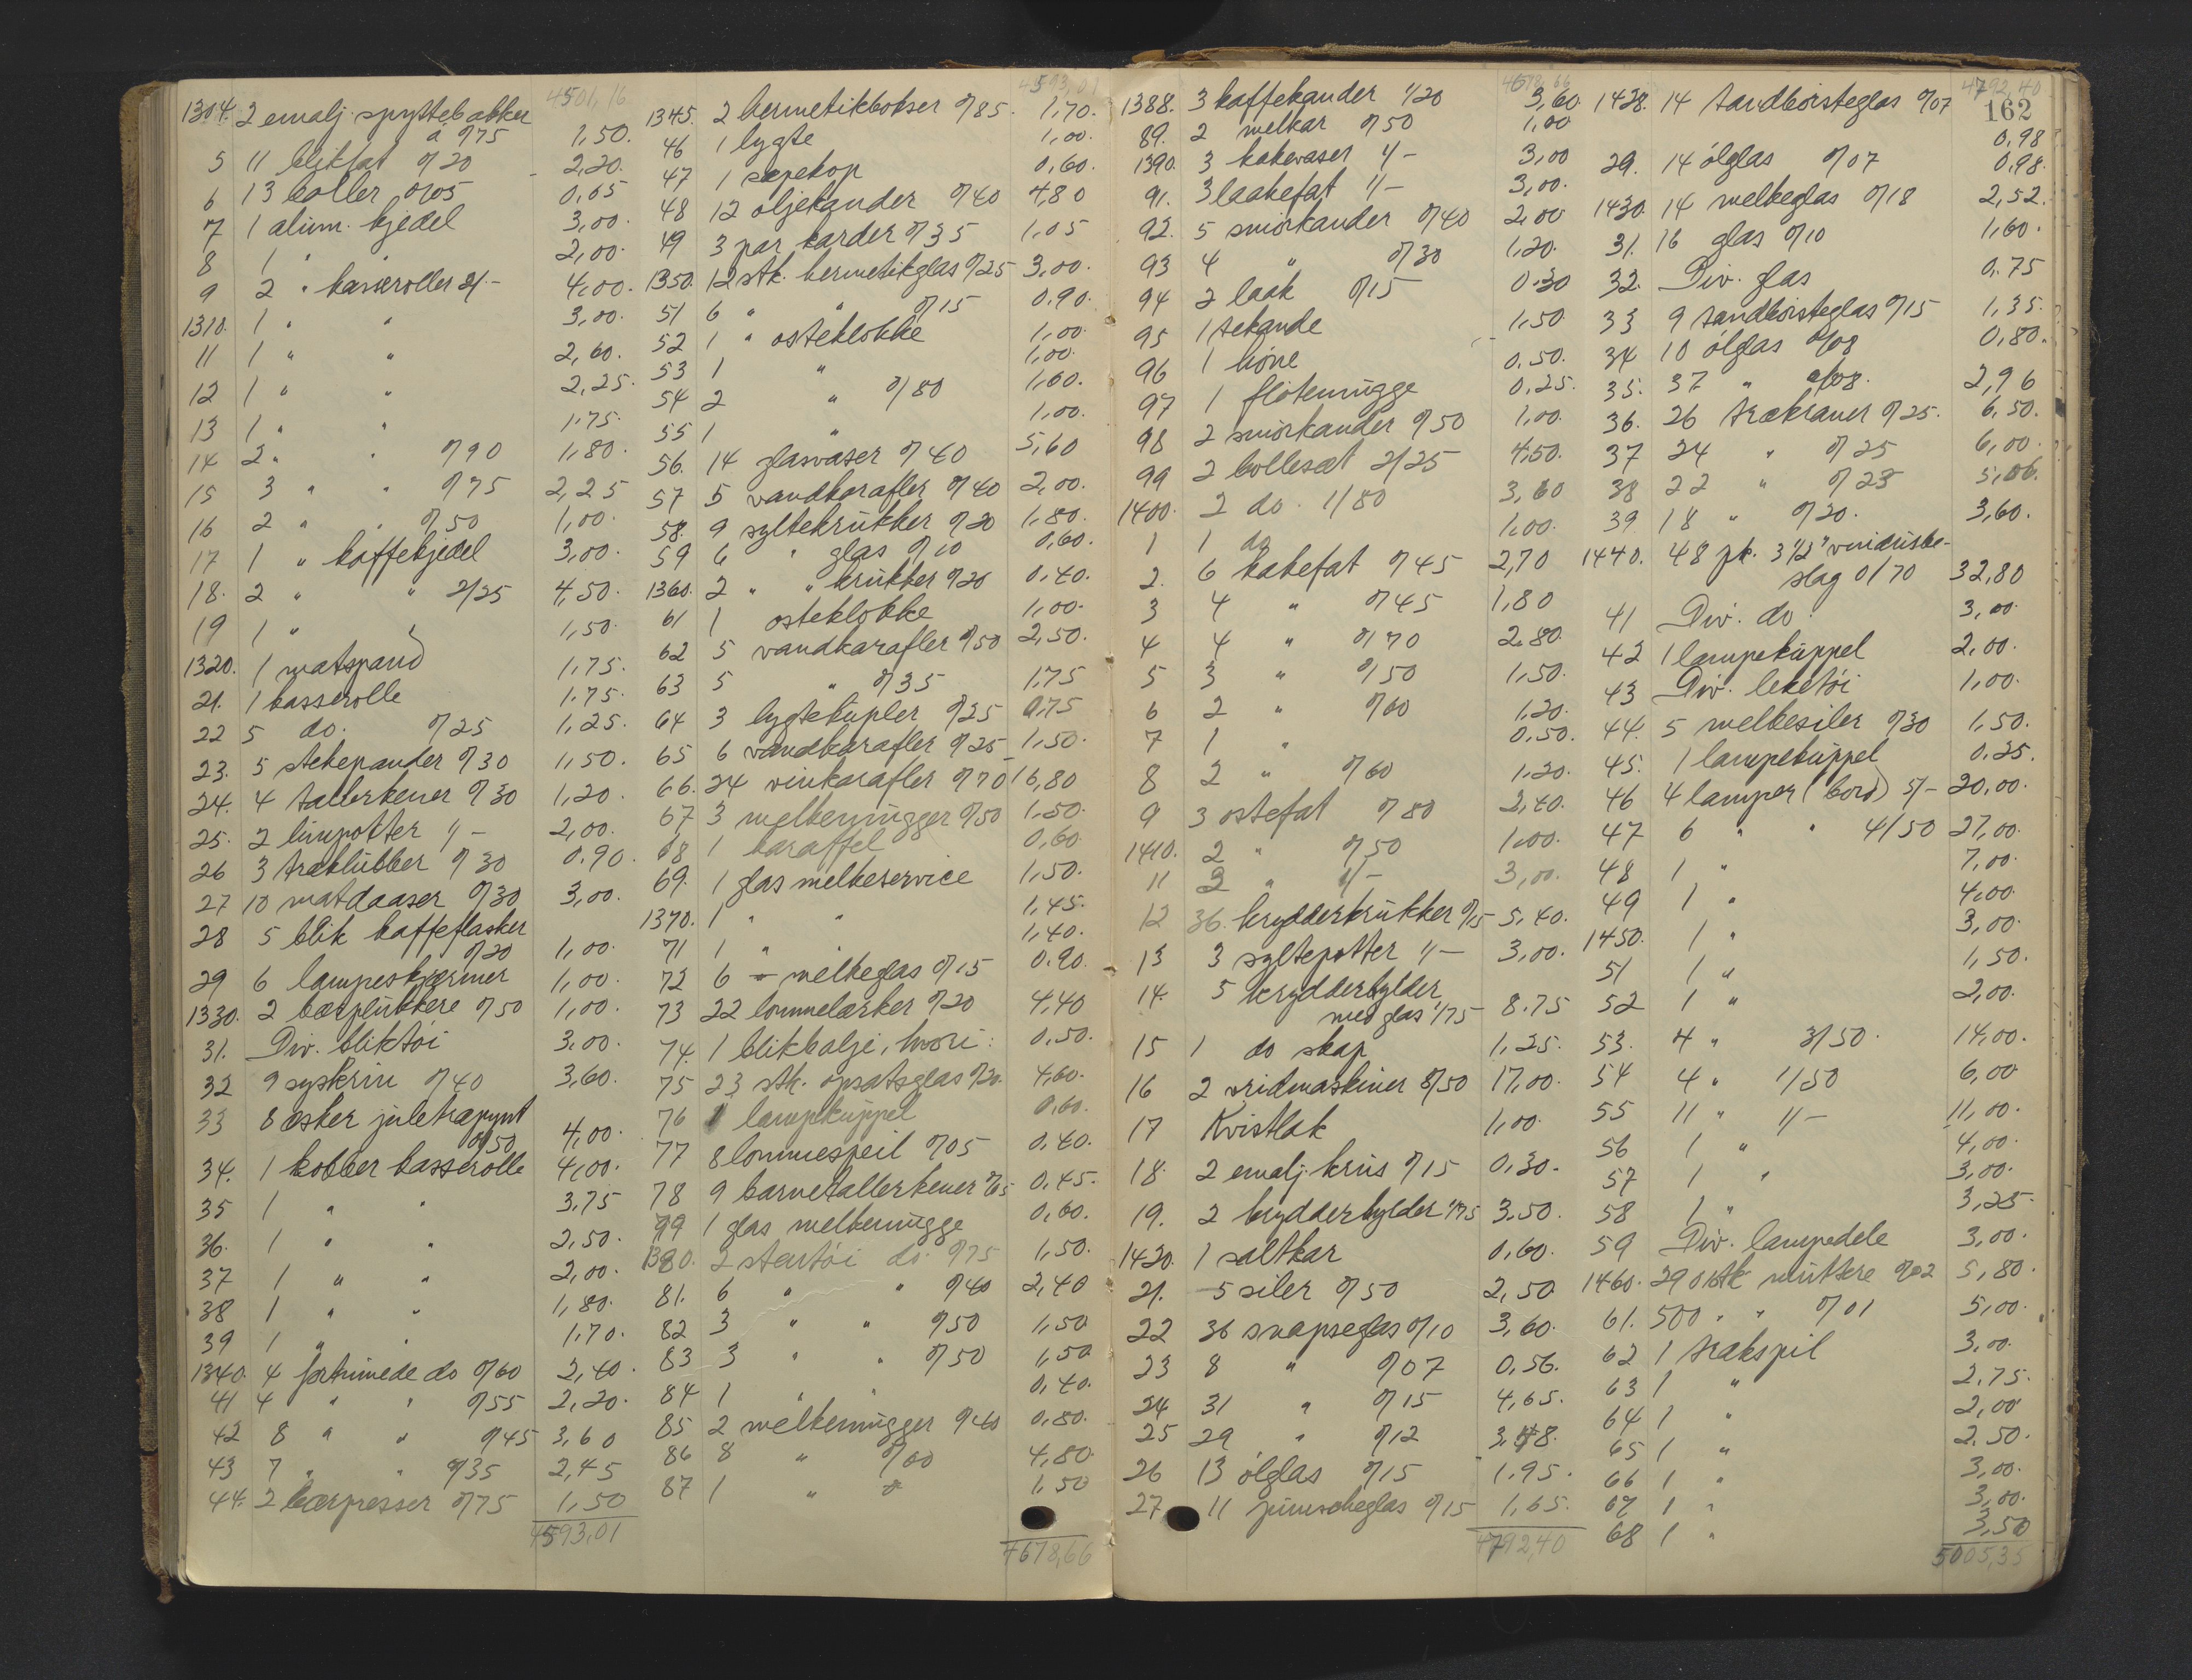 4501,16
1304. 2 emalj. spyttebakker
à 0/75 1,50.
5 11 blikfat 0/20 2,20.
6 13 boller 0/05 0,65
7 1 alum. kjedel 3,00.
8 1 " " 2,00.
9 2 " kasseroller 2/- 4,00.
1310. 1 " " 3,00.
11 1 " " 2,60.
12 1 " " 2,25.
13 1 " " 1,75.
14 2 " " 0/90 1,80.
15 3 " " 0/75 2,25
16 2 " " 0/50 1,00.
17 1 " kaffekjedel 3,00.
18. 2 " " 2/25 4,50.
19 1 " " 1,50.
1320. 1 matspand 1,75.
21. 1 kasserolle 1,75.
22 5 do. 0/25 1,25.
23. 5 stekepander 0/30 1,50.
24. 4 tallerkener 0/30 1,20.
25. 2 limpotter 1/- 2,00.
26 3 træklubber 0/30 0,90.
27 10 matdaaser 0/30 3,00.
28 5 blik kaffeflasker
0/20 1,00.
29 6 lampeskjærmer 1,00.
1330. 2 bærplukkere 0/50 1,00.
31. Div. bliktöi 3,00.
32 9 syskrin 0/40 3,60.
33 8 æsker juletræpynt
0/50 4,00.
34. 1 kobber kasserolle 4,00.
35 1 " " 3,75
36. 1 " " 2,50.
37 1 " " 2,00.
38 1 " " 1,80.
39 1 " " 1,70.
1340. 4 fortinnede do 0/60 2,40.
41 4 " " 0/55 2,20.
42 8 " " 0/45 3,60
43 7 " " 0/35 2,45
44. 2 bærpresser 0/75 1,50
4593,01
4593,01
1345. 2 hermetikbokser 0/85. 1,70.
46 1 lygte 1,00.
47 1 sæpekop 0,60.
48 12 oljekander 0/40 4,80
49 3 par karder 0/35 1,05
1350. 12 stk. hermetikglas 0/25 3,00.
51 6 " " 0/15 0,90.
52 1 " osteklokke 1,00.
53 1 " 1,00.
54 2 " 0/80 1,60.
55 1 " 1,00.
56. 14 glasvaser 0/40 5,60
57 5 vandkarafler 0/40 2,00.
58. 9 syltekrukker 0/20 1,80.
59 6 " glas 0/10 0,60.
1360. 2 " " krukker 0/20 0,40.
61 1 osteklokke 1,00.
62 5 vandkarafler 0/50 2,50.
63 5 " 0/35 1,75
64 3 lygtekupler 0/25 0,75
65 6 vandkarafler 0/25 1,50.
66. 24 vinkarafler 0/70 16,80
67 3 melkemugger 0/50 1,50.
68 1 karaffel 0,60.
69. 1 glas melkeservice 1,50.
1370. 1 " " 1,45.
71 1 " " 1,40.
72 6 melkeglas 0/15 0,90.
73 22 lommelærker 0/20 4,40
74. 1 blikbalje, hvori: 0,50.
75 23 stk. opsatsglas 0/20. 4,60.
76 1 lampekuppel 0,60.
77 8 lommespeil 0/05 0,40.
78 9 barnetallerkener 0/05 0,45.
79 1 glas melkemugge 0,60.
1380. 2 stentöi do 0/75 1,50.
81. 6 " " 0/40 2,40
82 3 " " 0/50 1,50
83 3 " " 0/50 1,50
84 1 " " 0,40.
85 2 melkemugger 0/40 0,80.
86 8 " 0/60 4,80.
87 1 " " 1,50
4678,66
4678,66
1388. 3 kaffekander 1/20 3,60.
89. 2 melkar 0/50 1,00
1390. 3 kakevaser 1/- 3,00
91. 3 laakefat 1/- 3,00.
92. 5 smörkander 0/40 2,00
93 4 " 0/30 1,20.
94 2 laak 0/15 0,30
95 1 tekande 1,50
96 1 höne 0,50.
97 1 flötemugge 0,25.
98 2 smörkander 0/50 1,00.
99 2 bollesæt 2/25 4,50.
1400. 2 do. 1/80 3,60
1 1 do 1,00.
2. 6 kakefat 0/45 2,70
3 4 " 0/45 1,80
4 4 " 0/70 2,80
5 3 " 0/50 1,50.
6 2 " 0/60 1,20.
7 1 " 0,50.
8 2 " 0/60 1,20.
9 3 ostefat 0/80 2,40.
1410. 2 " 0/50 1,00.
11 3 " 1/- 3,00.
12 36 krydderkrukker 0/15 5,40.
13 3 syltepotter 1/- 3,00.
14. 5 krydderhylder
med glas 1/75 8,75
15 1 do skap 1,25.
16 2 vridmaskiner 8/50 17,00.
17 Kvistlak 1,00.
18. 2 emalj. krus 0/15 0,30.
19. 2 krydderhylder 1/75 3,50.
1420. 1 saltkar 0,60.
21. 5 siler 0/50 2,50
22 36 snapseglas 0/10 3,60.
23 8 " 0/07 0,56.
24 31 " 0/15 4,65.
25 29 " 0/12 3,48.
26 13 ölglas 0/15 1,95.
27 11 punscheglas 0/15 1,65.
4792,40
4792,40
162
1428. 14 tandbörsteglas 0/07 0,98
29. 14 ölglas 0/07 0,98.
1430. 14 melkeglas 0/18 2,52.
31. 16 glas 0/10 1,60.
32. Div. glas 0,75
33 9 tandbörsteglas 0/15 1,35.
34 10 ölglas 0/08 0,80.
35. 37 " 0/08. 2,96
36. 26 trækraner 0/25. 6,50.
37 24 " 0/25 6,00.
38 22 " 0/23 5,06.
39 18 " 0/20. 3,60.
1440. 48 pk. 3 1/2" vindusbe-
slag 0/70 32,80
41 Div. do. 3,00.
42 1 lampekuppel 2,00.
43 Div. leketöi 1,00.
44. 5 melkesiler 0/30 1,50.
45. 1 lampekuppel 0,25.
46 4 lamper (bord) 5/- 20,00.
47 6 " " 4/50 27,00.
48 1 " 7,00.
49 1 " 4,00
1450. 1 " 3,00.
51 1 " 1,50.
52 1 " 2,00.
53. 4 " 3/50. 14,00.
54 4 " 1/50 6,00
55 11 " 1/- 11,00.
56 1 " 4,00.
57 1 " 3,00.
58 1 " 3,25.
59 Div. lampedele 3,00.
1460. 290 stk muttere 0/02 5,80.
61. 500 " " 0/01 5,00.
62 1 trækspil 3,00.
63 1 " 2,75.
64 1 " 2,00
65 1 " 2,50.
66 1 " 3,00.
67 1 " 3,00.
68 1 " 3,50
5005,35